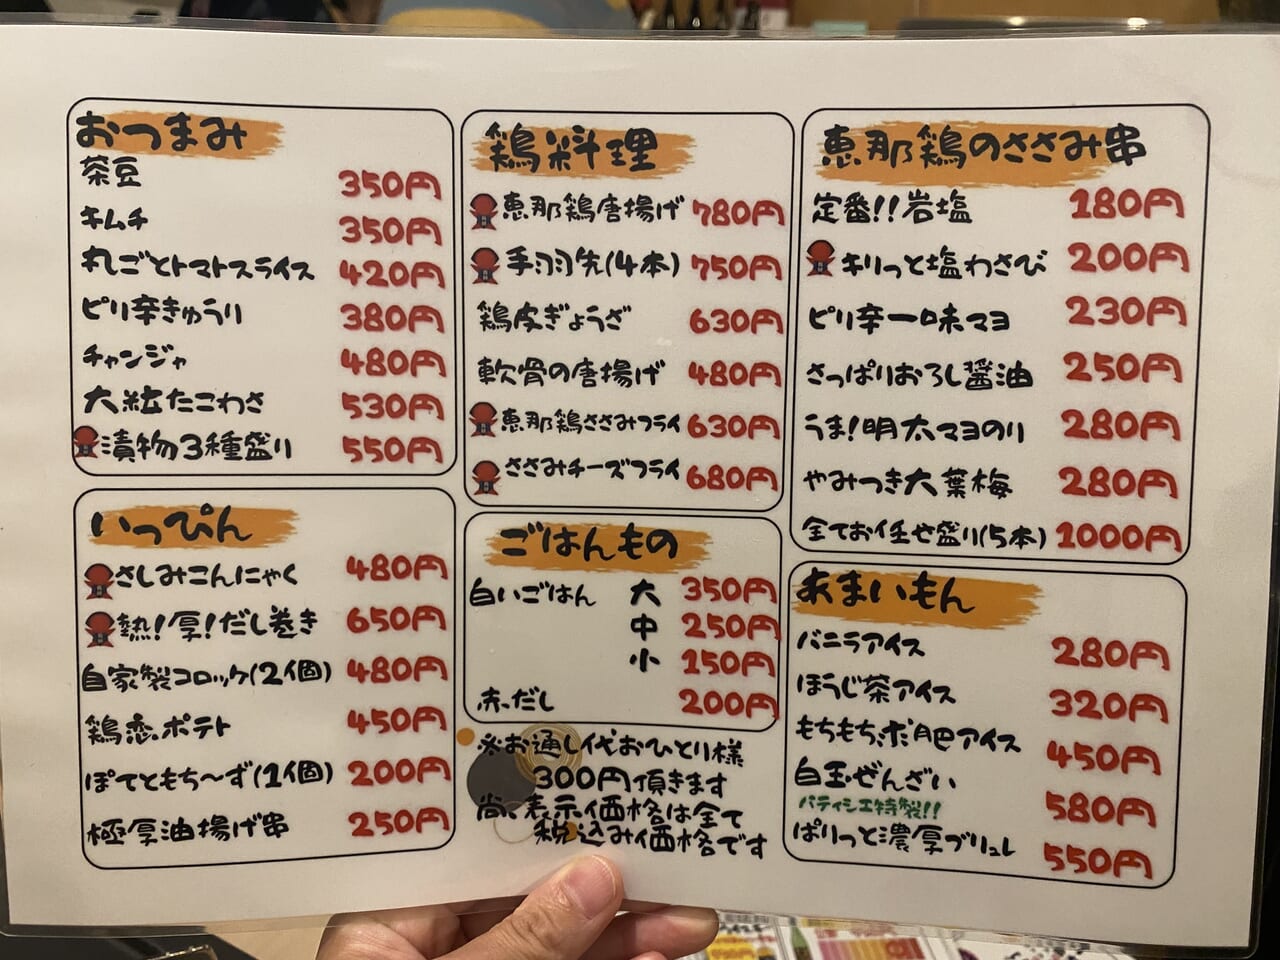 おつまみ
茶豆 350円
キムチ 350円
丸ごとトマトスライス 420円
ピリ辛きゅうり 380円
チャンジャ 480円
大絃たこわさ 530円
漬物3種盛り 550円
いっぴん
さしみこんにゃく 480円
熱!厚!だし巻き 650円
自家製コロッケ(2個) 480円
鶏恋ポテト 450円
ぽてともち〜ず(1個) 200円
極厚油揚げ串 250円
鶏料理
恵那鶏唐揚げ 780円
手羽先(4本) 750円
鶏皮ぎょうざ 630円
軟骨の唐揚げ 480円
恵那鶏ささみフライ 630円
ささみチーズフライ 680円
ごはんもの
白いごはん 大 350円
中 250円
小 150円
赤だし 200円
※お通し代おひとり様
300円頂きます
尚、表示価格は全て
税込み価格です
恵那鶏のささみ串
定番!!岩塩 180円
キリっと塩わさび 200円
ピリ辛一味マヨ 230円
さっぱりおろし醤油 250円
うま!明太マヨのり 280円
やみつき大葉梅 280円
全てお任せ盛り(5本) 1000円
あまいもん
バニラアイス 280円
ほうじ茶アイス 320円
もちもち求肥アイス 450円
白玉ぜんざい 580円
パティシエ特製!!
ぱりっと濃厚ブリュレ 550円